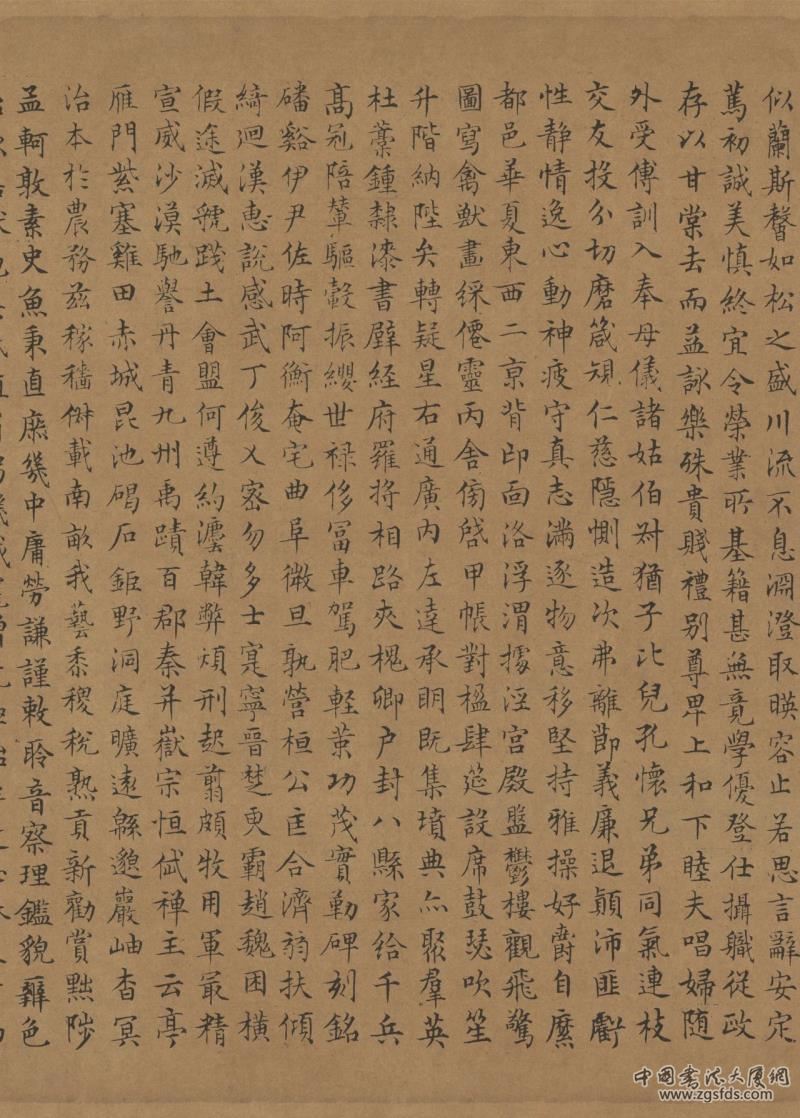 似蘭斯馨如松之盛川流不息淵澄取暎容止若思言辭安定
篤初誠美慎終宜令榮業所基籍甚無竟學優登仕攝職從政
存以甘棠去而益詠樂殊貴賤禮別尊卑上和下睦夫唱婦随
外受傅訓入奉母儀諸姑伯叔猶子比兒孔懷兄弟同氣連枝
交友投分切磨箴規仁慈隱惻造次弗離節義廉退顛沛匪虧
性静情逸心動神疲守真志滿逐物意移堅持雅操好爵自縻
都邑華夏東西二京背邙面洛浮渭據涇宮殿盤鬱樓觀飛驚
圖寫禽獸畫綵僊靈丙舍傍啓甲帳對楹肆筵設席鼓瑟吹笙
升階納陛弁轉疑星右通廣內左達承明既集墳典亦聚羣英
杜稾鍾隸漆書壁經府羅將相路夾槐卿户封八縣家給千兵
高冠陪輦驅轂振纓世禄侈富車駕肥軽策功茂實勒碑刻銘
磻谿伊尹佐時阿衡奄宅曲阜微旦孰營桓公匡合濟弱扶傾
綺迴漢惠說感武丁俊乂密勿多士寔寧晉楚更霸趙魏困橫
假途滅虢踐土會盟何遵約灋韓弊煩刑起翦頗牧用軍最精
宣威沙漠馳譽丹青九州禹蹟百郡秦并嶽宗恒岱禅主云亭
雁門紫塞雞田赤城昆池碣石鉅野洞庭曠遠緜邈巖岫杳冥
治本於農務兹稼穡俶載南畝我藝黍稷稅熟貢新勸賞黜陟
孟軻敦素史魚秉直庶幾中庸勞謙謹敕聆音察理鑑貌辨色
中國書法大廈網
www.zgsfds.com